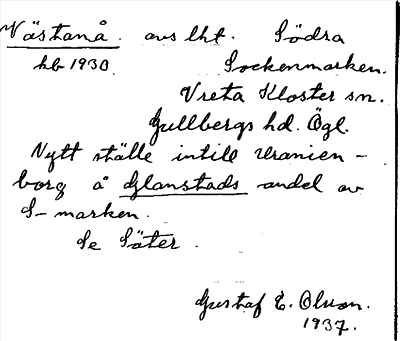 Västanå. avs lht. Södra
hb 1930. Sockenmarken.
Vreta Kloster sn.
Gullbergs hd. Ögl.
Nytt ställe intill Uranien-
borg å Glanstads andel av
S-marken.
Se Säter.
Gustaf E. Olsson.
1937.